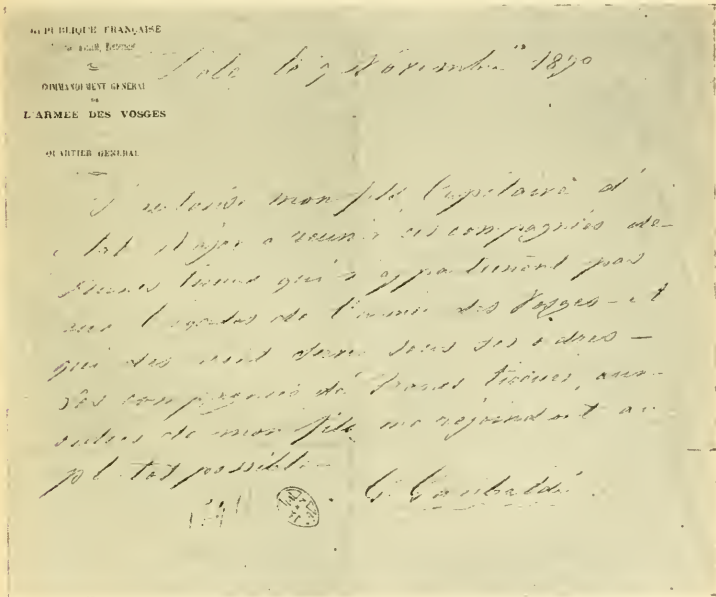 RÉPUBLIQUE FRANÇAISE
COMMANDEMENT GÉNÉRAL
DE
L'ARMÉE DES VOSGES
QUARTIER GÉNÉRAL
Dole le 9 Novembre 1870
J'autorise mon fils Capitaine d'
état Major a reunir les compagnies de
francs tireurs qui n'appartienent pas
aux brigades de l'armée des Vosges - et
qui desirent dans sous ses ordres -
Les compagnies de francs tireurs, aux
ordres de mon fils me rejoindront au
plutot possible -
G. Garibaldi.